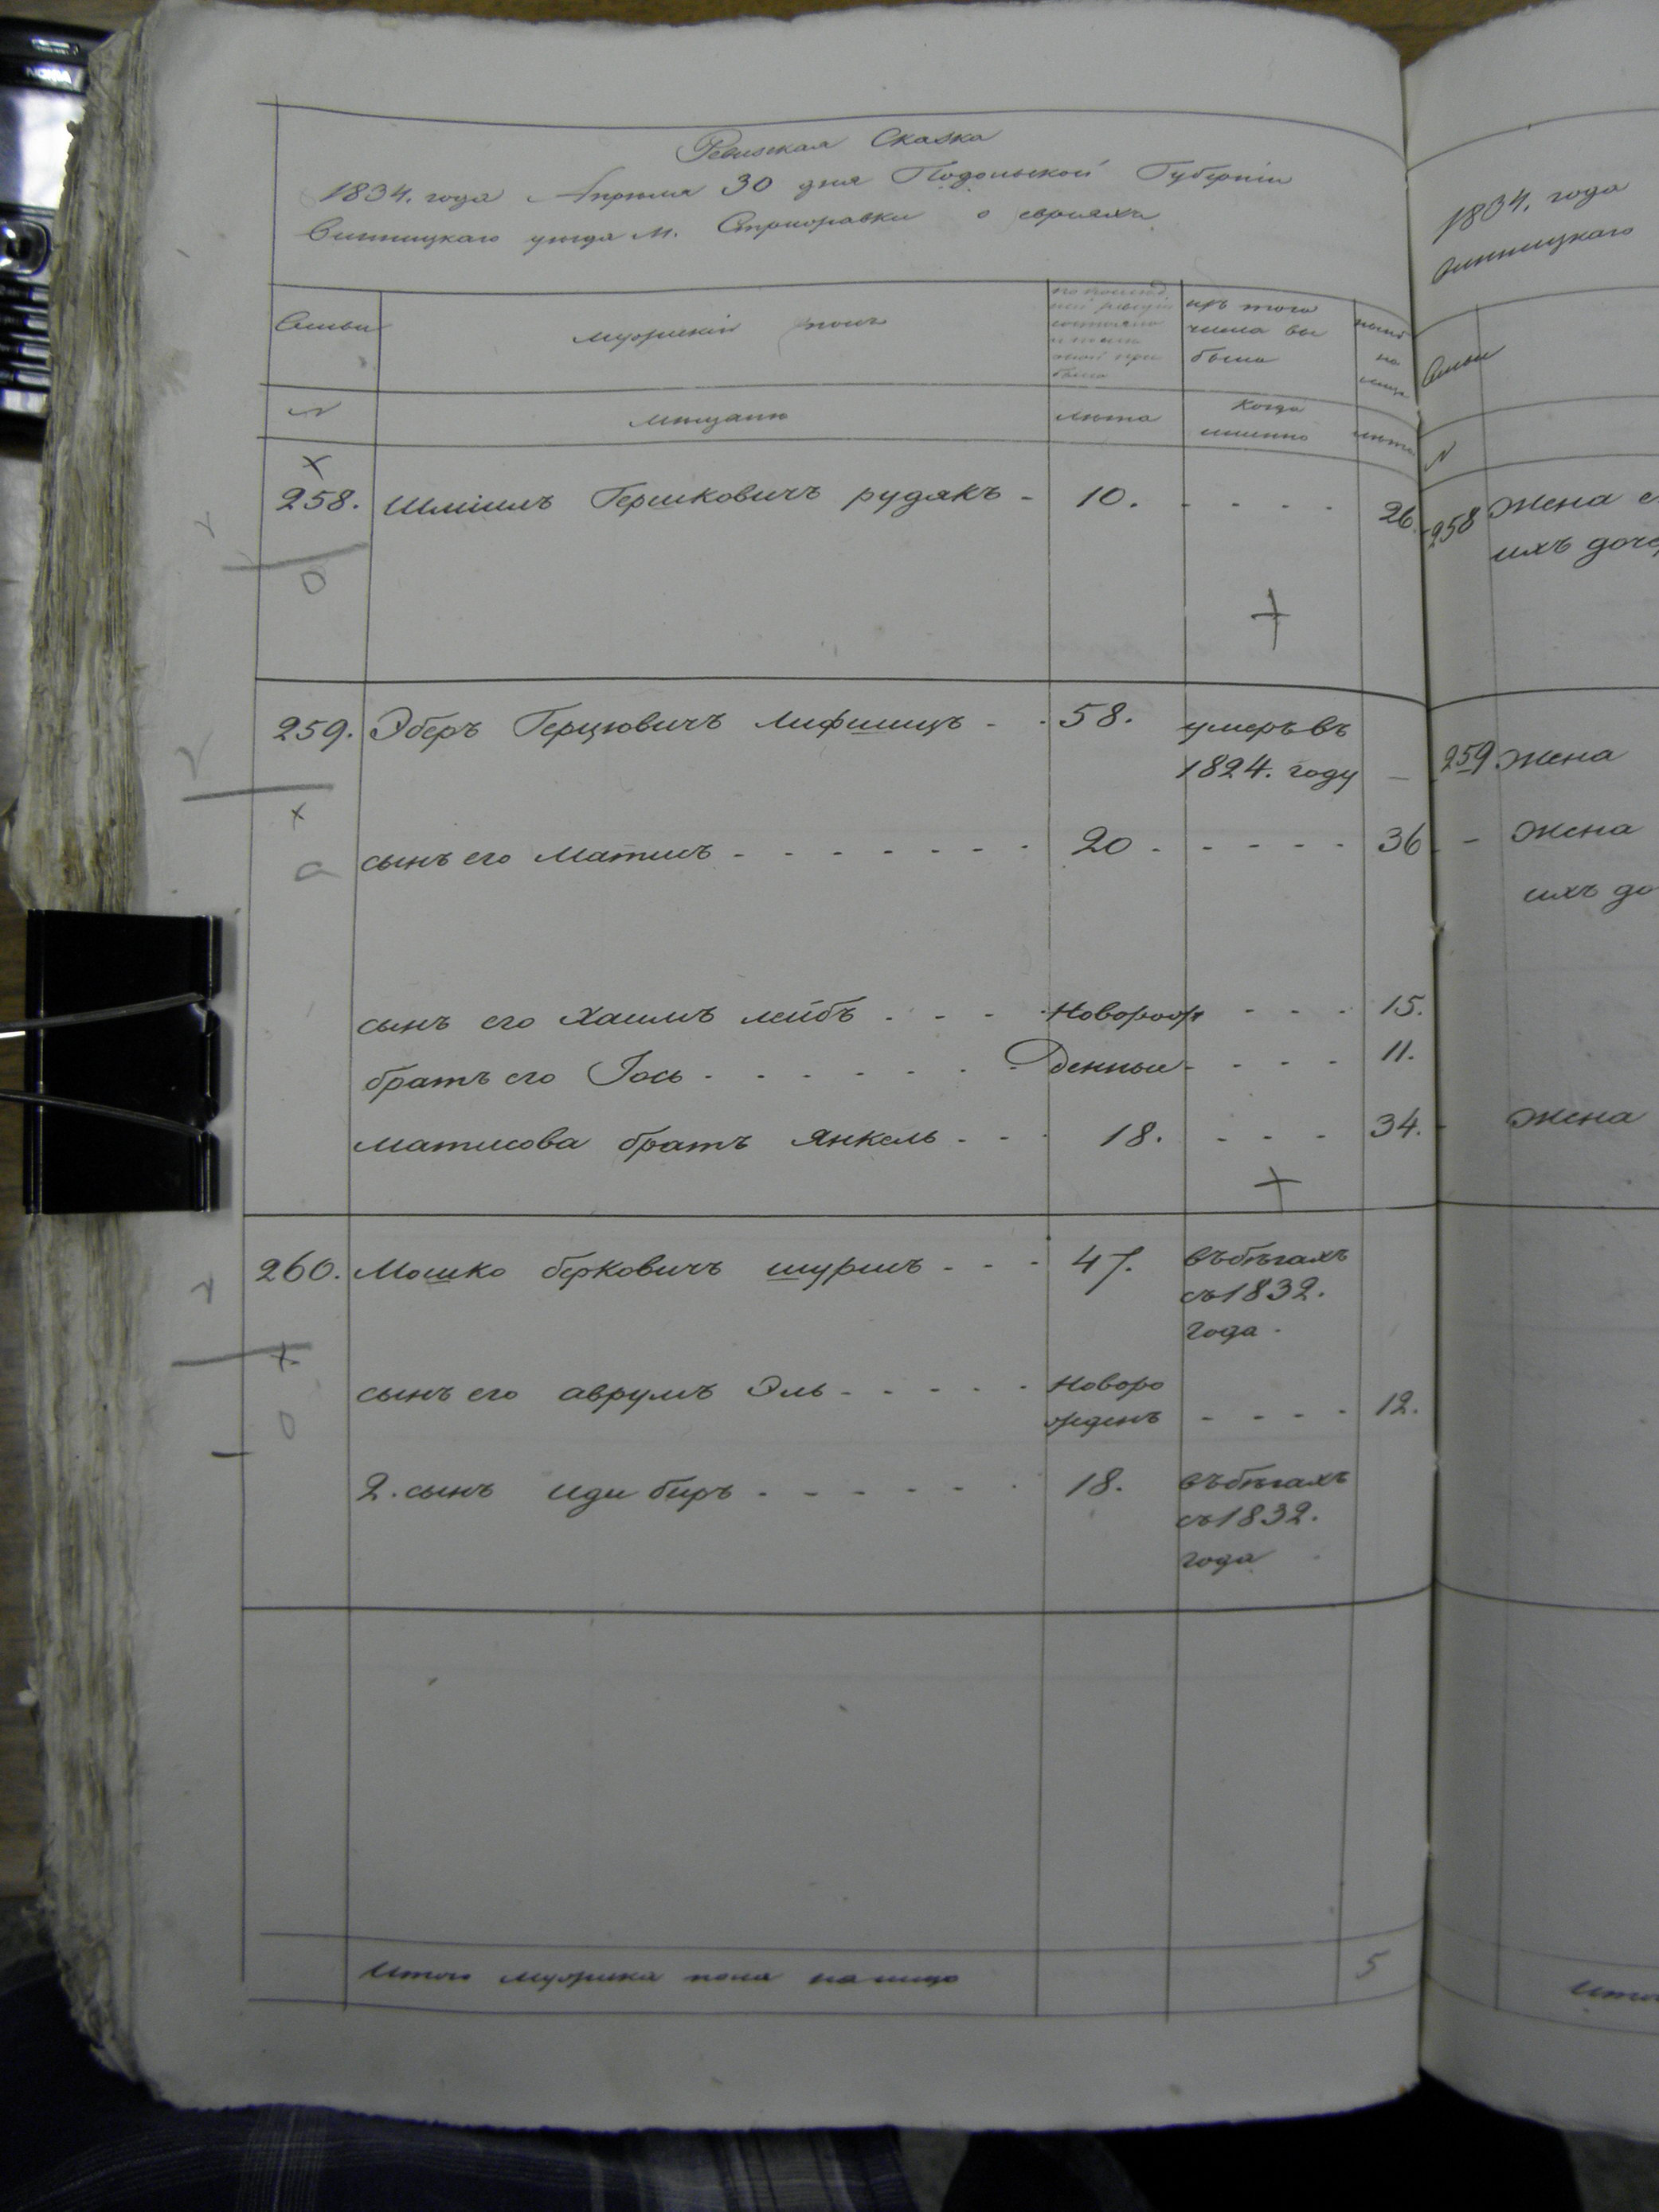 Ревизская Сказка
1834. года Апреля 30 дня Подольской Губернии
Винницкаго уезда м. Стрижавки о евреяхъ
Семьи
мужескій полъ
по послед
ней ревизіи
состояло
и после
оной при
было
изъ того
числа вы
было
ныне
на
лицо
N
мещане
лета
когда
именно
лета
258. Шміилъ Гершковичъ рудякъ - 10. - - - - 26.
259. Эберъ Герцювичъ Лифшицъ - - 58. умеръ въ
1824. году -
сынъ его Матисъ - - - - - - - 20 - - - - - 36
сынъ его Хаимъ лейбъ - - - - Новорож - - - 15.
братъ его Іось - - - - - - - денные - - - - 11.
матисова братъ Янкель - - - 18. - - - 34.
260. Мошко берковичъ шуршъ - - - 47. въ бегахъ
съ 1832.
года -
сынъ его аврумъ Эль - - - - - Новоро
жденъ - - - - 12.
2. сынъ иди беръ - - - - - - 18. въ бегахъ
съ 1832.
года
Итого мужеска пола на лицо 5
1834. года
Винницкаго
Семьи
N
258 Жена е
ихъ доче
259 Жена
- Жена
ихъ до
Жена
Ито
NOKIA